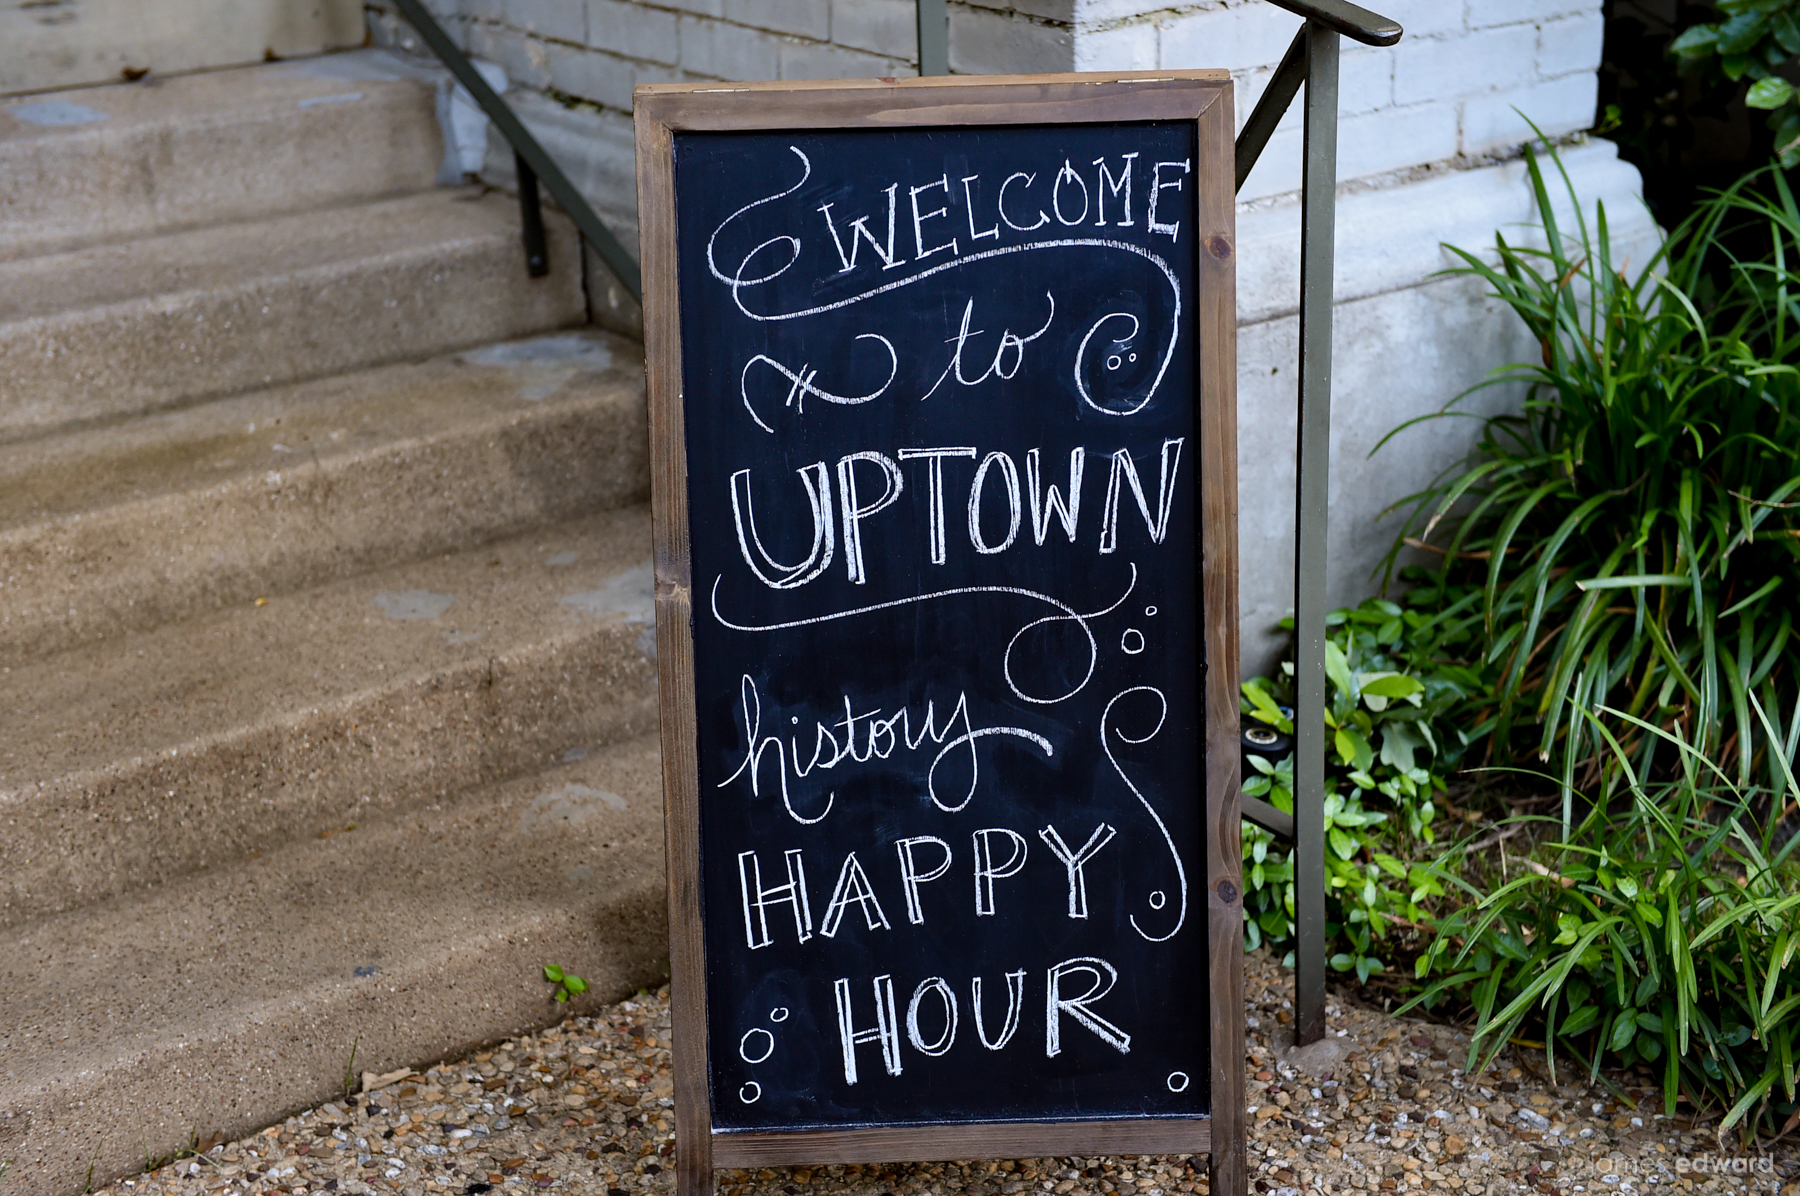 WELCOME
to
UPTOWN
history
HAPPY
HOUR
james edward